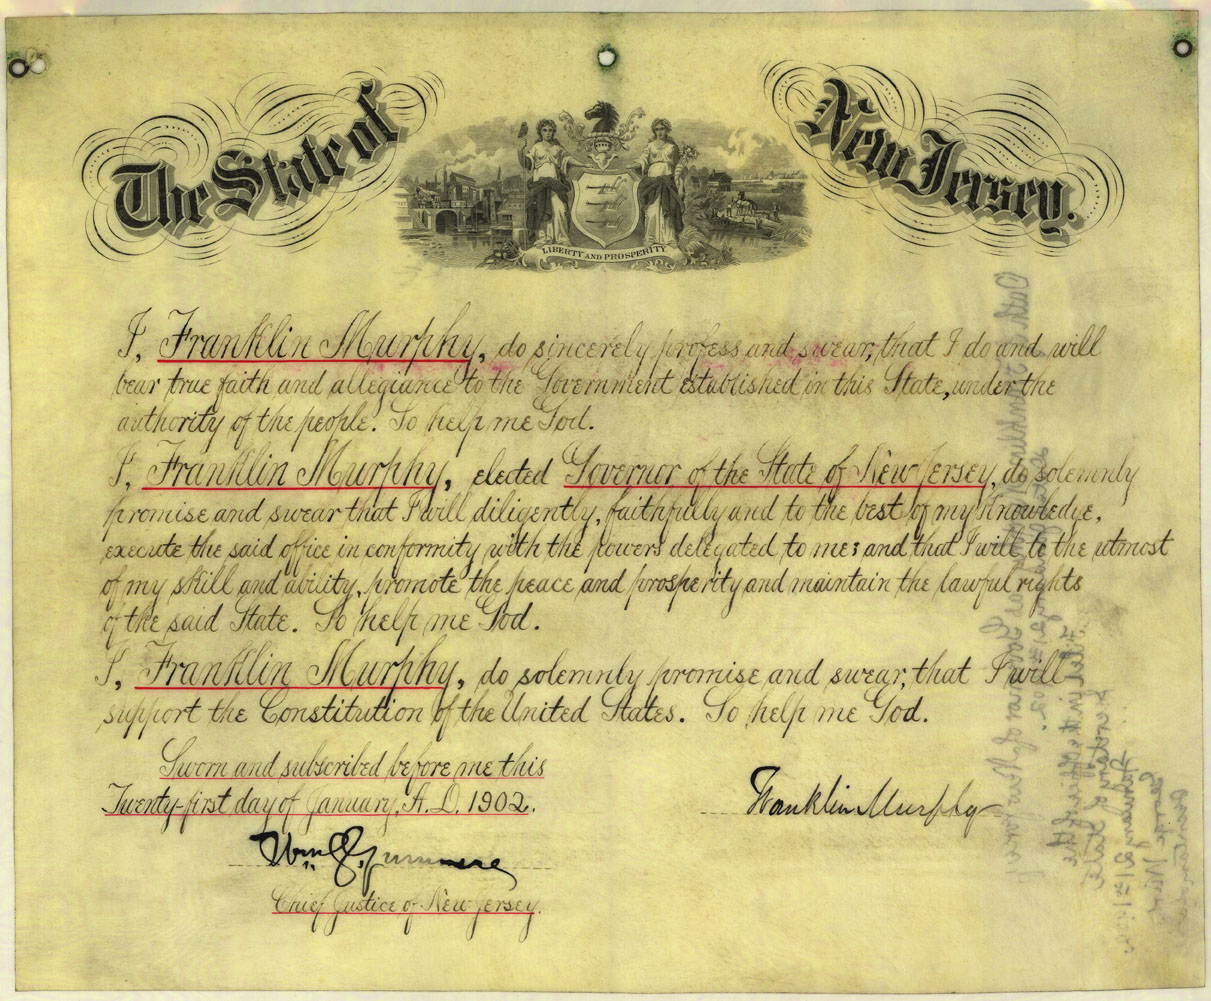 The State of New Jersey.
LIBERTY AND PROSPERITY
I, Franklin Murphy, do sincerely profess and swear, that I do and will
bear true faith and allegiance to the Government established in this State, under the
authority of the people. So help me God.
I, Franklin Murphy, elected Governor of the State of New Jersey, do solemnly
promise and swear that I will diligently, faithfully and to the best of my knowledge,
execute the said office in conformity with the powers delegated to me; and that I will to the utmost
of my skill and ability, promote the peace and prosperity and maintain the lawful rights
of the said State. So help me God.
I, Franklin Murphy, do solemnly promise and swear, that I will
support the Constitution of the United States. So help me God.
Sworn and subscribed before me this
Twenty-first day of January, A.D. 1902.
Franklin Murphy
Wm. S. Gummere
Chief Justice of New Jersey.